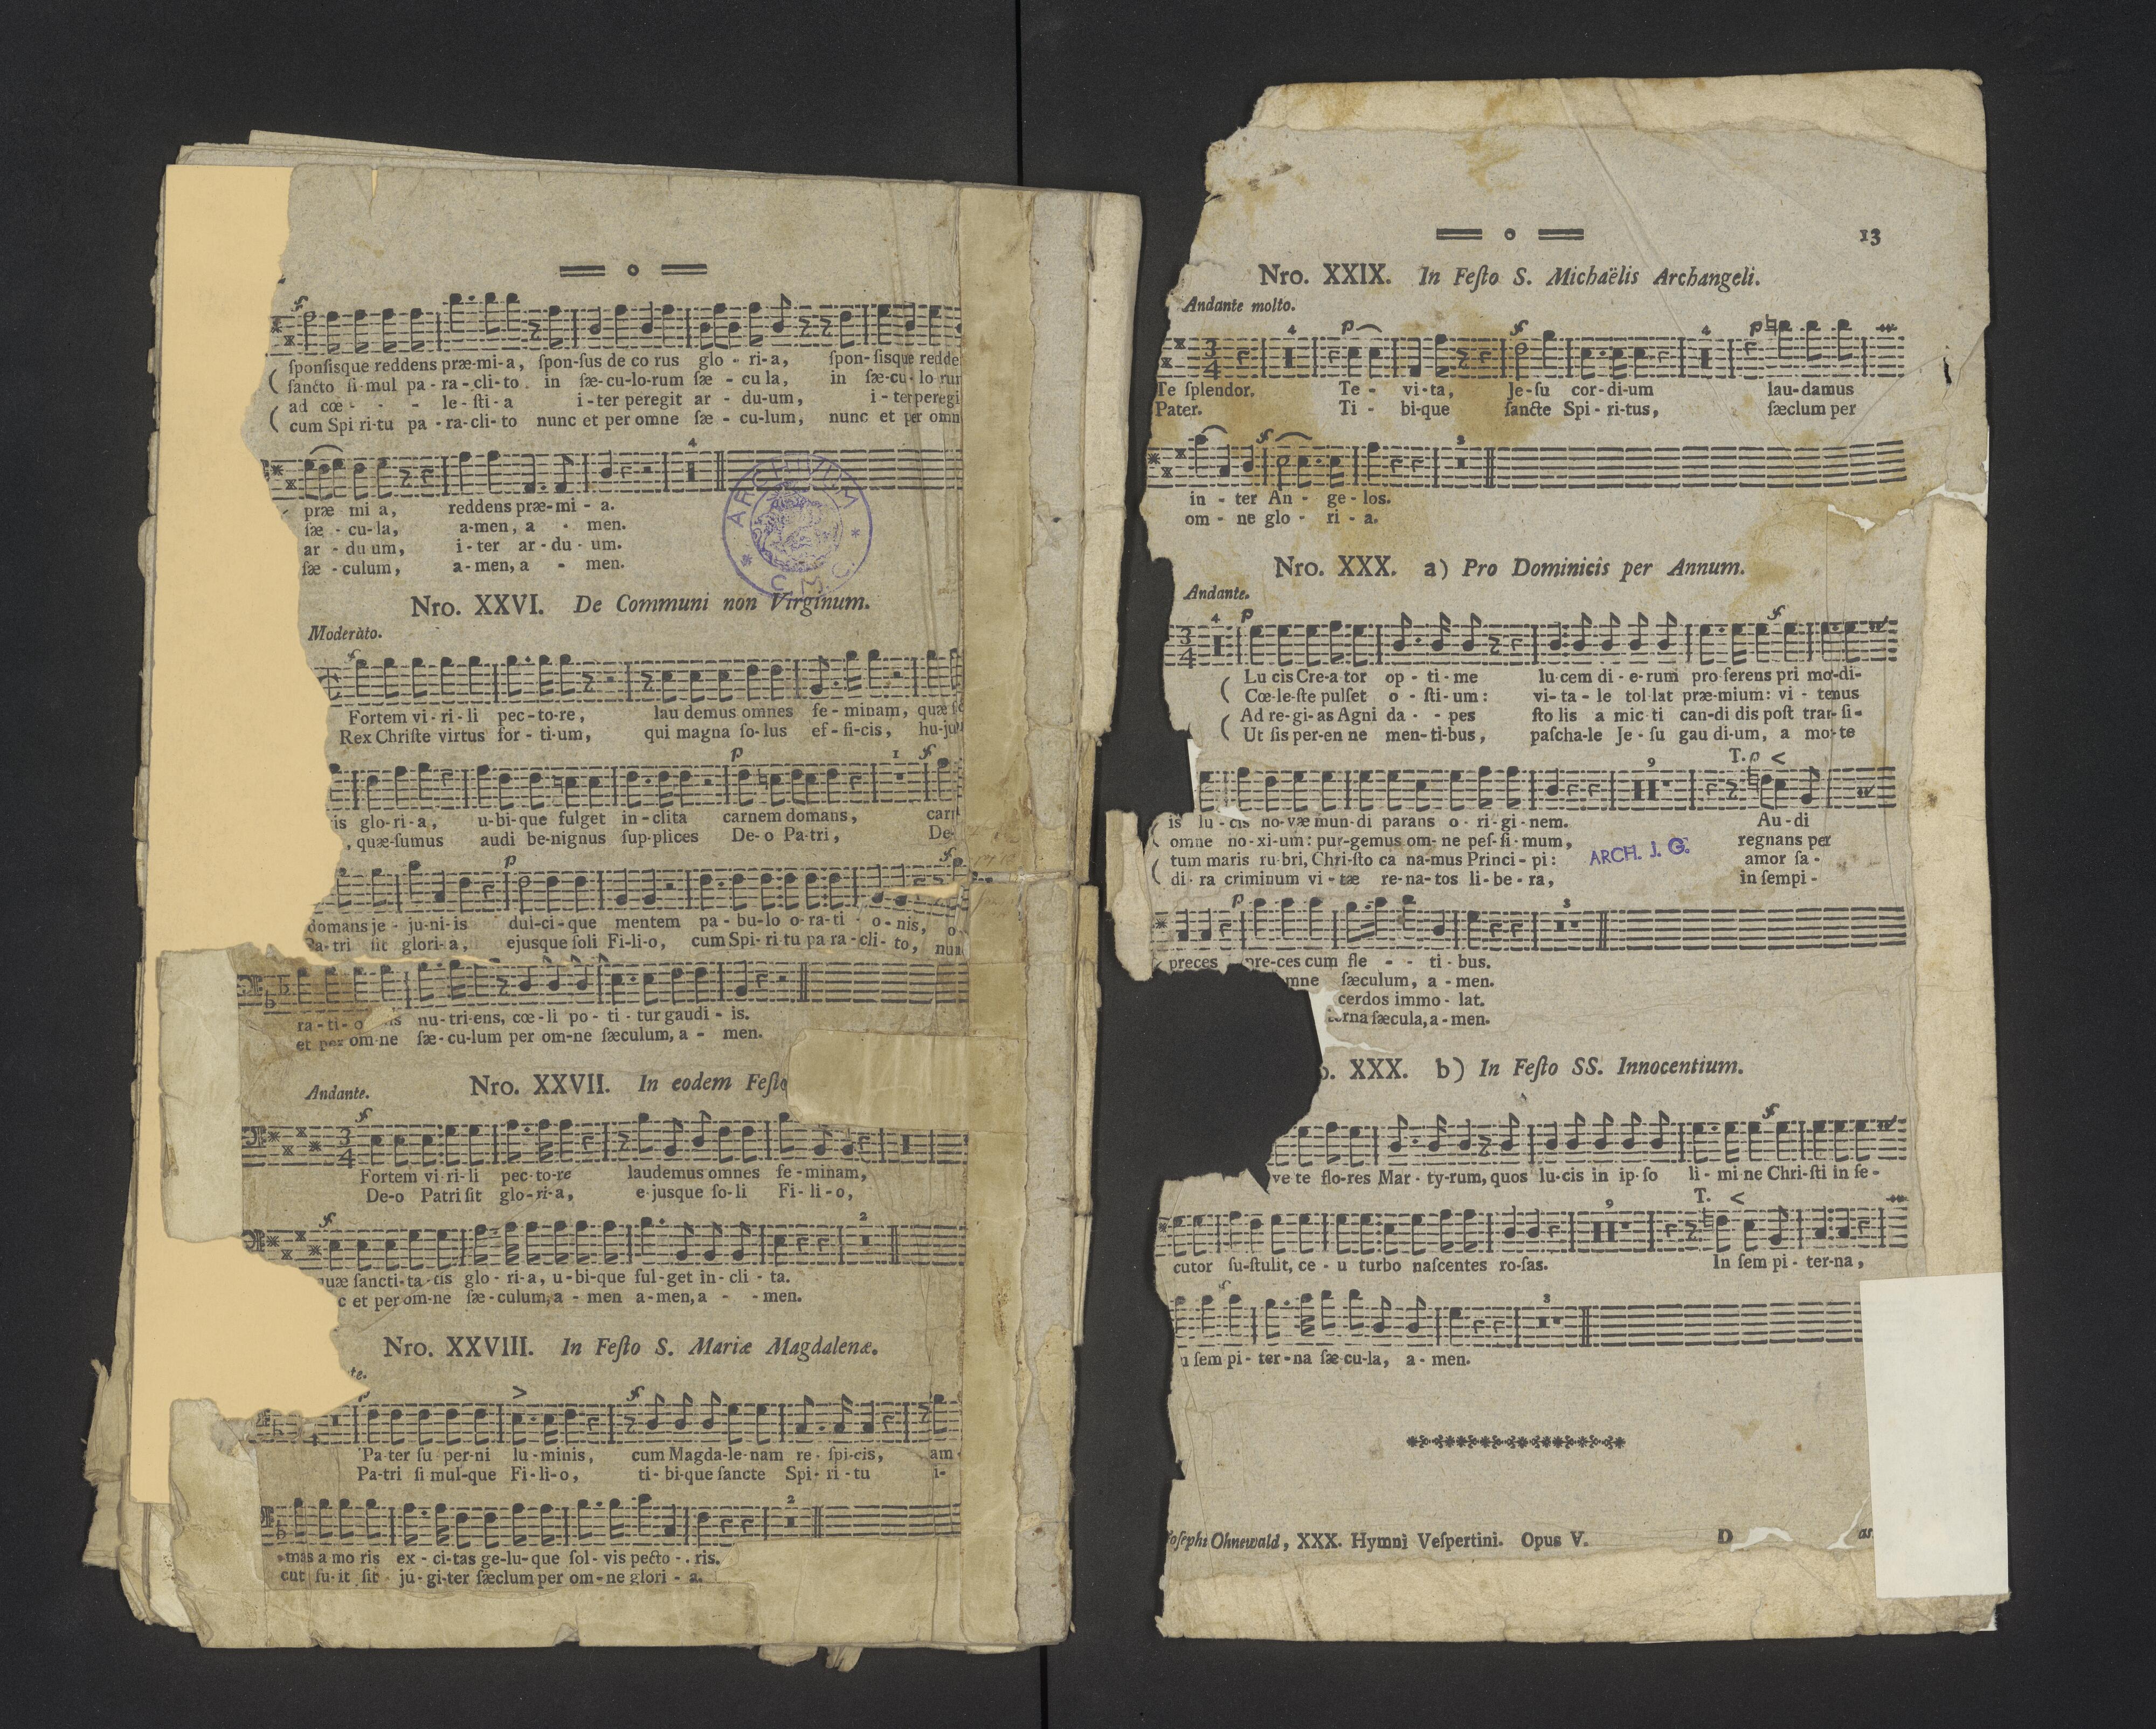 ſponſisque reddens præ-mi-a, ſpon-ſus de co rus glo - ri-a, ſpon-ſisque redde
ſancto ſi-mul pa-ra-cli-to in ſæ-cu-lo-rum ſæ - cu la, in ſæ-cu-lo rum
ad cœ - - - le-ſti-a i-ter peregit ar - du-um, i-ter peregi
cum Spi ri-tu pa-ra-cli-to nunc et per omne ſæ - cu-lum, nunc et per omn
4
præ - mi a, reddens præ-mi - a.
ſæ - cu-la, a-men, a - men.
ar - du um, i-ter ar-du - um.
ſæ - culum, a-men, a - men.
ARCHIVUM * C. M. C. *
Nro. XXVI. De Communi non Virginum.
Moderàto.
Fortem vi-ri-li pec-to-re, lau demus omnes fe-minam, quæ ſ
Rex Chriſte virtus for-ti-um, qui magna ſo-lus ef-fi-cis, hu-ju
is glo-ri-a, u-bi-que fulget in-clita carnem domans, car
, quæ-ſumus audi be-nignus ſup-plices De-o Pa-tri, De-
domans je - ju-ni-is dul-ci-que mentem pa-bu-lo o-ra-ti - o-nis, o-
Pa-tri ſit glori-a, ejusque ſoli Fi-li-o, cum Spi-ri-tu pa ra-cli-to, nun
ra-ti-o is nu-tri-ens, cœ-li po-ti-tur gaudi-is.
et per om-ne ſæ-cu-lum per om-ne ſæculum, a - men.
Nro. XXVII. In eodem Feſto
Andante.
Fortem vi-ri-li pec-to-re laudemus omnes fe-minam,
De-o Patri ſit glo-ri-a, e-jusque ſo-li Fi-li-o,
quæ ſancti-ta-tis glo-ri-a, u-bi-que ful-get in-cli-ta.
c et per om-ne ſæ-culum, a-men a-men, a - - men.
Nro. XXVIII. In Feſto S. Mariæ Magdalenæ.
te.
Pa-ter ſu per-ni lu-minis, cum Magda-le-nam re-ſpi-cis, am-
Pa-tri ſi mul-que Fi-li-o, ti-bi-que ſancte Spi-ri-tu i-
mas a mo ris ex-ci-tas ge-lu-que ſol-vis pecto-ris.
cut fu-it ſit ju-gi-ter ſæclum per om-ne glori-a.
13
Nro. XXIX. In Feſto S. Michaëlis Archangeli.
Andante molto.
Te ſplendor. Te - vi-ta, Je-ſu cor-di-um lau-damus
Pater. Ti - bi-que ſancte Spi-ri-tus, ſæclum per
in - ter An - ge-los.
om - ne glo - ri - a.
Nro. XXX. a) Pro Dominicis per Annum.
Andante.
Lu cis Cre-a tor op-ti-me lu cem di-e-rum pro ferens pri mo-di-
Cœ-le-ſte pulſet o-ſti-um: vi-ta-le tol lat præ-mium: vi-temus
Ad re-gi-as Agni da - - pes ſto lis a mic ti can-di dis poſt tran-ſi-
Ut ſis per-en ne men-ti-bus, paſcha-le Je-ſu gau di-um, a mor-te
T. p <
is lu-cis no-væ mun-di parans o-ri-gi-nem. Au-di
omne no-xi-um: pur-gemus om-ne peſ-ſi-mum, regnans per
tum maris ru bri, Chri-ſto ca na-mus Princi-pi: amor ſa-
di-ra criminum vi-tæ re-na-tos li-be-ra, in ſempi-
ARCH. J. G.
preces pre-ces cum fle - - ti-bus.
mne ſæculum, a-men.
cerdos immo-lat.
terna ſæcula, a-men.
o. XXX. b) In Feſto SS. Innocentium.
ve te flo-res Mar-ty-rum, quos lu-cis in ip-ſo li-mi ne Chri-ſti in ſe-
T. <
cutor ſu-ſtulit, ce-u turbo naſcentes ro-ſas. In ſem pi-ter-na,
u ſem pi-ter-na ſæ cu-la, a-men.
Joſephi Ohnewald, XXX. Hymni Veſpertini. Opus V. D as